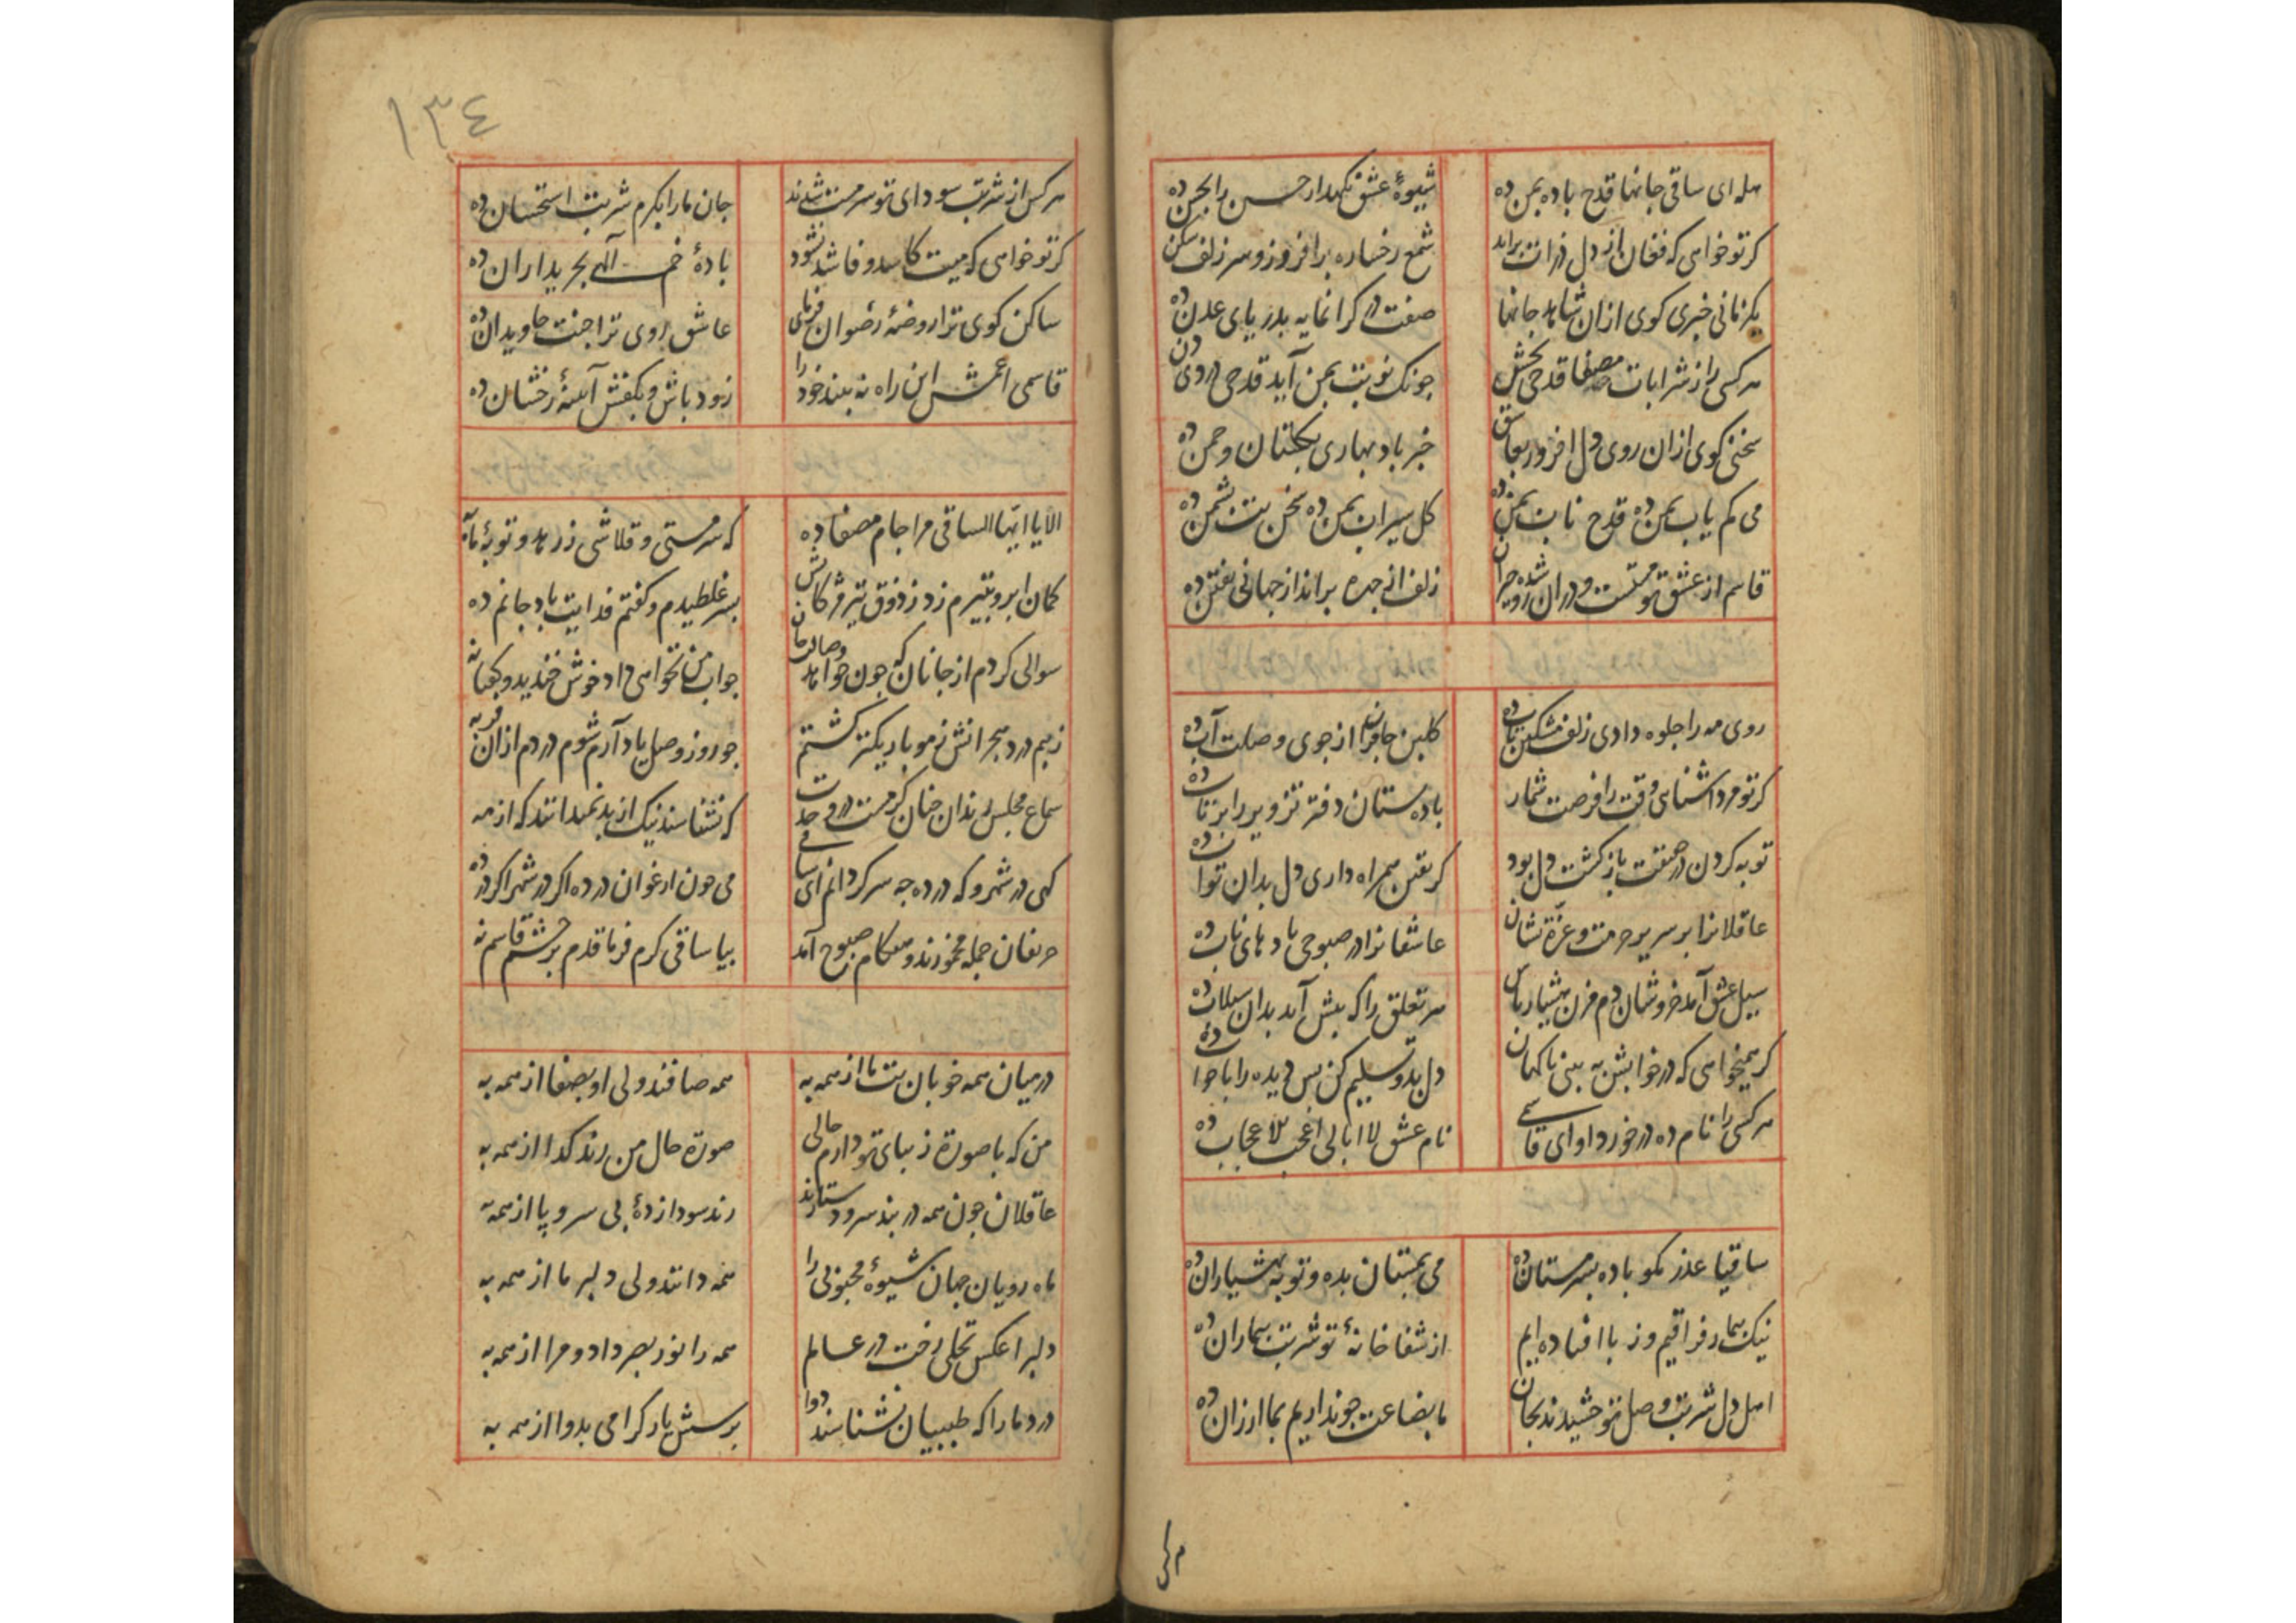 هله ای ساقی جانها قدح باده بمن ده
شیوۀ عشق نکهدار حسن را بحسن ده
کر تو خواهی که فغان از دل ذرات براید
شمع رخساره برافروز و سر زلف شکن ده
یکزمانی خبری کوی ازان شاهد جانها
صفت در کرانمایه بدریای عدن ده
هر کسی را ز شرابات مصفا قدحی بخش
چونک نوبت بمن آید قدحی دردی دن ده
سخنی کوی ازان روی دل افروز بعاشق
خبر باد بهاری بکلستان و چمن ده
می کم یاب بمن ده قدح ناب بمن ده
کل سیراب بمن ده سخن بت بشمن ده
قاسم از عشق تو مستست و دران رو شده حیران
زلف از چهره برانداز جهانی بفتن ده
روی مه را جلوه دادی زلف مشکین تاب ده
کلبن جانرا از جوی وصلت آب ده
کر تو مرد اشنایی وقت را فرصت شمار
باده بستان دفتر تزویر را بر تاب ده
توبه کردن در حقیقت بازکشت دل بود
کر یقین همراه داری دل بدان تواب ده
عاقلانرا بر سریر حرمت و عزة نشان
عاشقانرا در صبوحی بادهای ناب ده
سیل عشق آمد خروشان دم مزن هشیار باش
هر تعلق را که پیش آید بدان سیلاب ده
کر همیخواهی که در خوابش به بینی ناکهان
دل بدو تسلیم کن پس دیده را با خواب ده
هر کسی را نام ده در خورد او ای قاسمی
نام عشق لا ابالی اعجب لاعجاب ده
ساقیا عذر مکو باده بسرمستان ده
می بمستان بده و توبه بهشیاران ده
نیک بیمار فراقیم و ز پا افتاده ایم
از شفا خانۀ تو شربت بیماران ده
اهل دل شربت وصل تو خشیدند بجان
ما بضاعت چو نداریم بما ارزان ده
۱۳٤
هر کس از شربت سودای تو سرمست شدند
جان ما را بکرم شربت استحسان ده
کر تو خواهی که میت کاسد و فاشد نشود
بادۀ خم آلهی بخریداران ده
ساکن کوی ترا روضۀ رضوان فرمای
عاشق روی ترا جنت جاویدان ده
قاسمی اعمش این راه نه بیند خود را
زود باش و بکفش آینۀ رخشان ده
الا یا ایها الساقی مرا جام مصفا ده
که سرمستی و قلاشی ز زهد و توبۀ ما به
کمان ابرو بتیرم زد ز ذوق تیر مژکانش
بسر غلطیدم و کفتم فدایت باد جانم ده
سوالی کردم از جانان که چون خواهد وصالت جان
جواب من نخواهی داد خوش خندید و کفتا نه
ز بیم درد هجرانش ز مو باریکتر کشتم
چو روز وصل یاد آرم شوم در دم ازان فربه
سماع مجلس رندان چنان کرمست در وحدت
که نشناسند نیک از بد نمیدانند که از مه
کهی در شهر و که در ده چه سر کردانم ای ساقی
می چون ارغوان در ده اکر در شهر اکر در ده
حریفان جمله مخمورند و هنکام صبوح آمد
بیا ساقی کرم فرما قدم بر چشم قاسم نه
در میان همه خوبان بت ما از همه به
همه صافند ولی او بصفا از همه به
من که با صورة زیبای تو دارم حالی
صورة حال من رند کدا از همه به
عاقلان چون همه در بند سر و دستارند
رند سودا زدۀ بی سر و پا از همه به
ماه رویان جهان شیوۀ محبوبی را
همه دانند ولی دلبر ما از همه به
دلبرا عکس تجلی رخت در عالم
همه را نور بصر داد و مرا از همه به
درد ما را که طبیبان نشناسند دوا
پرسش یار کرامی بدوا از همه به